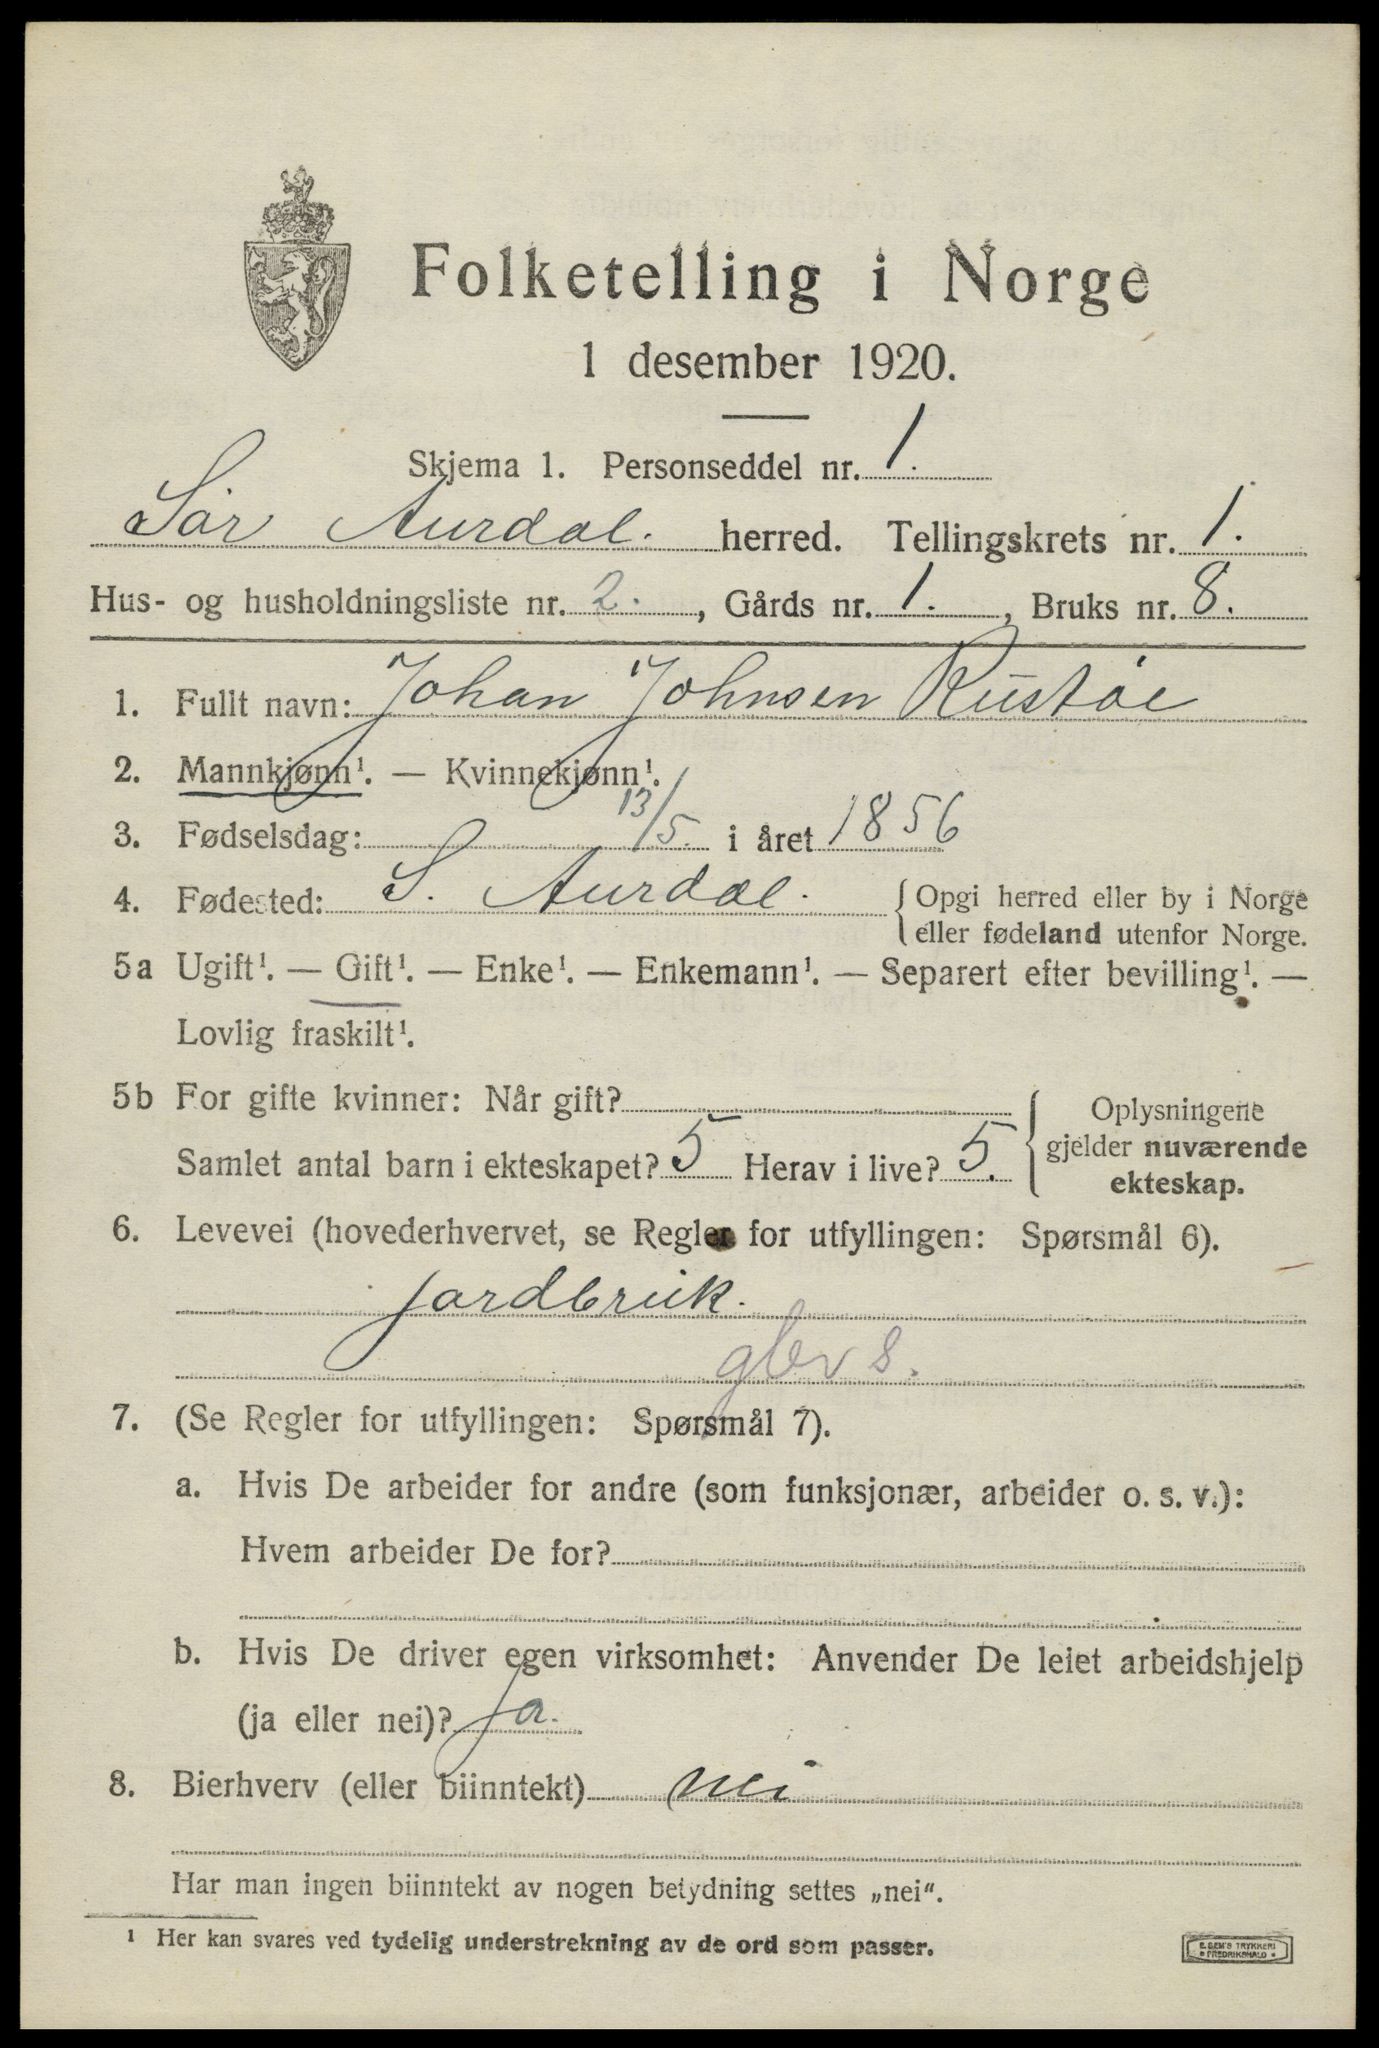 Folketelling i Norge
1 desember 1920.
Skjema 1. Personseddel nr. 1.
Sør Aurdal. herred. Tellingskrets nr. 1.
Hus- og husholdningsliste nr. 2. , Gårds nr. 1. , Bruks nr. 8.
1. Fullt navn: Johan Johnsen Rustøe
2. Mannkjønn¹. — Kvinnekjønn¹.
3. Fødselsdag: 13/5. i året 1856
4. Fødested: S. Aurdal. { Opgi herred eller by i Norge
eller fødeland utenfor Norge.
5a Ugift¹. — Gift¹. — Enke¹. — Enkemann¹. — Separert efter bevilling¹. —
Lovlig fraskilt¹.
5b For gifte kvinner: Når gift?
Samlet antal barn i ekteskapet? 5 Herav i live? 5.
Oplysningene
gjelder nuværende
ekteskap.
6. Levevei (hovederhvervet, se Regler for utfyllingen: Spørsmål 6).
jordbruk.
gbr s.
7. (Se Regler for utfyllingen: Spørsmål 7).
a. Hvis De arbeider for andre (som funksjonær, arbeider o. s. v.):
Hvem arbeider De for?
b. Hvis De driver egen virksomhet: Anvender De leiet arbeidshjelp
(ja eller nei)? Ja.
8. Bierhverv (eller biinntekt) nei
Har man ingen biinntekt av nogen betydning settes „nei“.
¹ Her kan svares ved tydelig understrekning av de ord som passer.
E. SEM'S TRYKKERI
• FREDRIKSHALD •